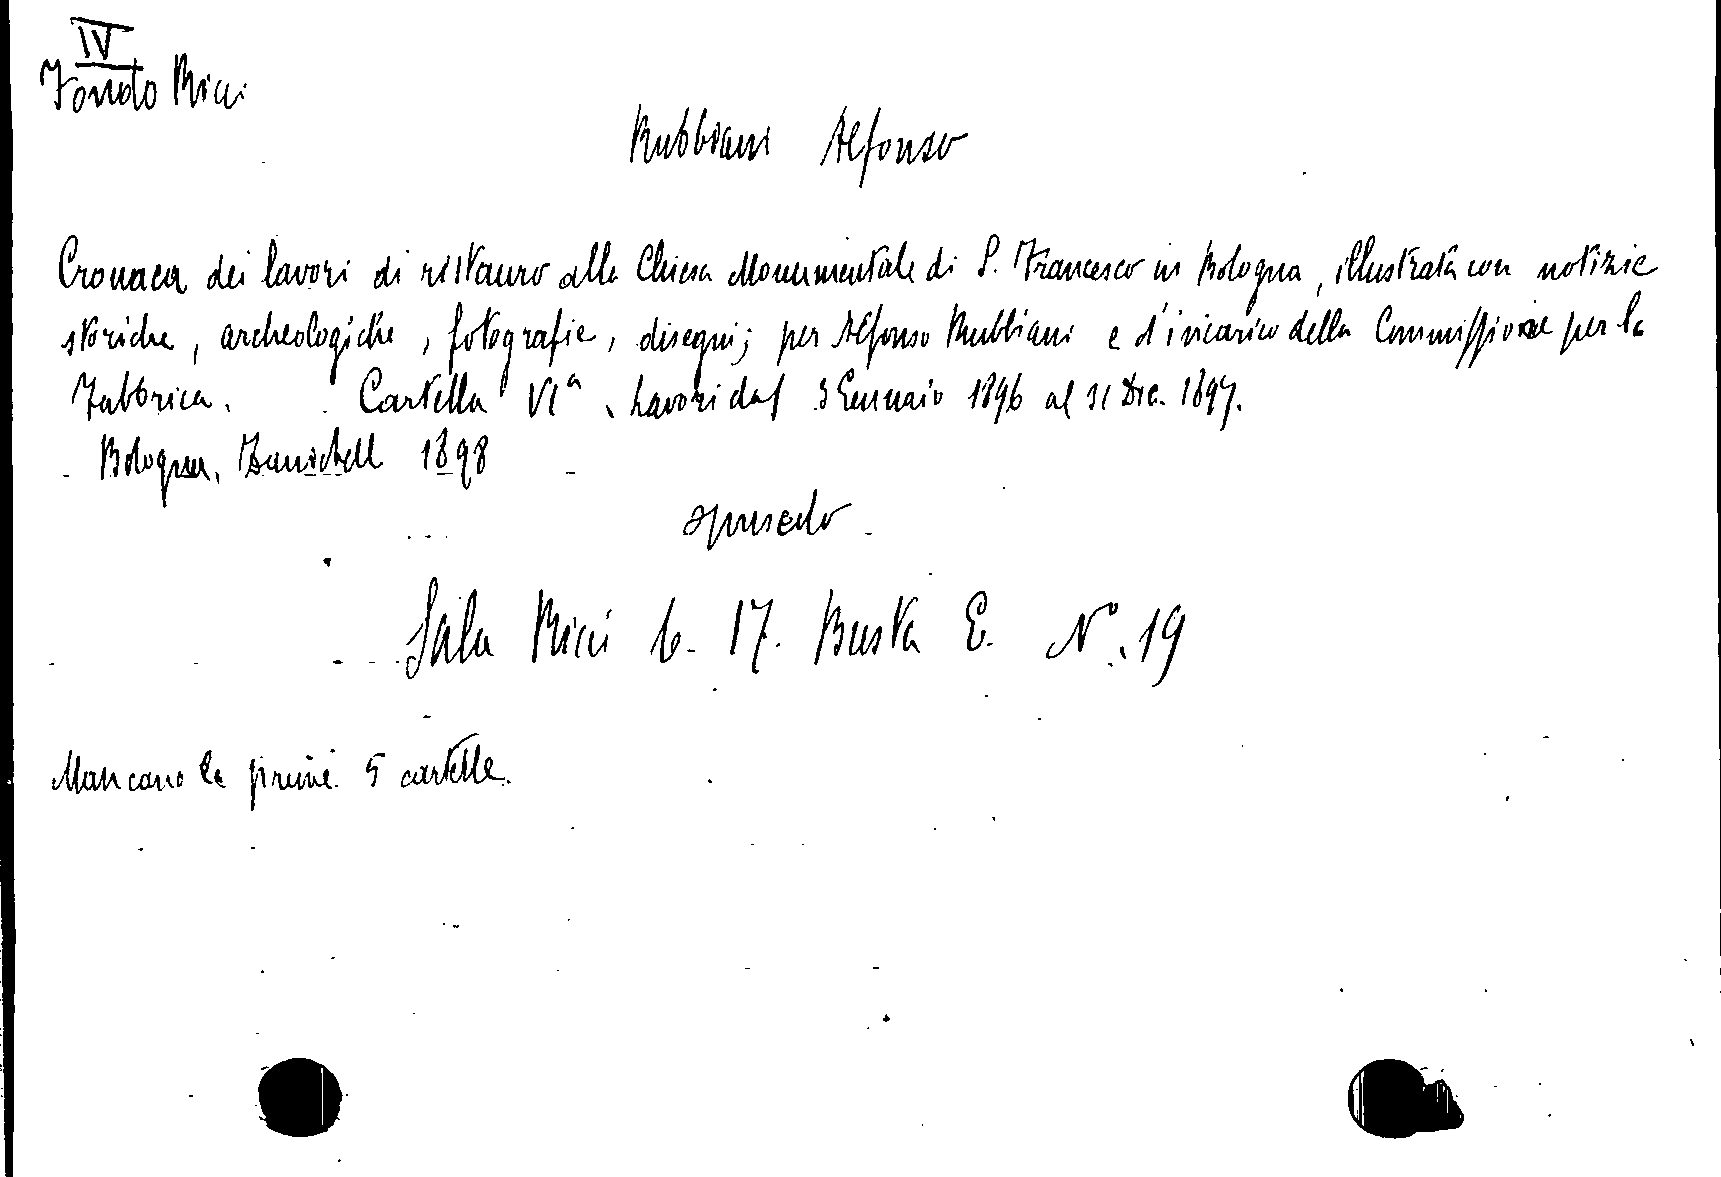 IV
Fondo Ricci
Rubbiani Alfonso
Cronaca dei lavori di ristauro alla Chiesa Monumentale di S. Francesco in Bologna, illustrata con notizie
storiche, archeologiche, fotografie, disegni; per Alfonso Rubbiani e d'incarico della Commissione per la
Fabbrica. Cartella VIª. Lavori dal 3 Gennaio 1896 al 31 Dic. 1897.
Bologna, Zanichelli 1898
opuscolo
Sala Ricci b. 17. Busta E. N°. 19
Mancano le prime 5 cartelle.